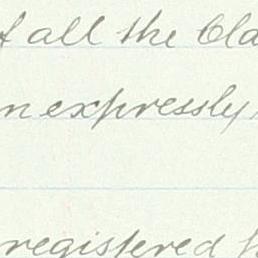 all the
expressly
registered